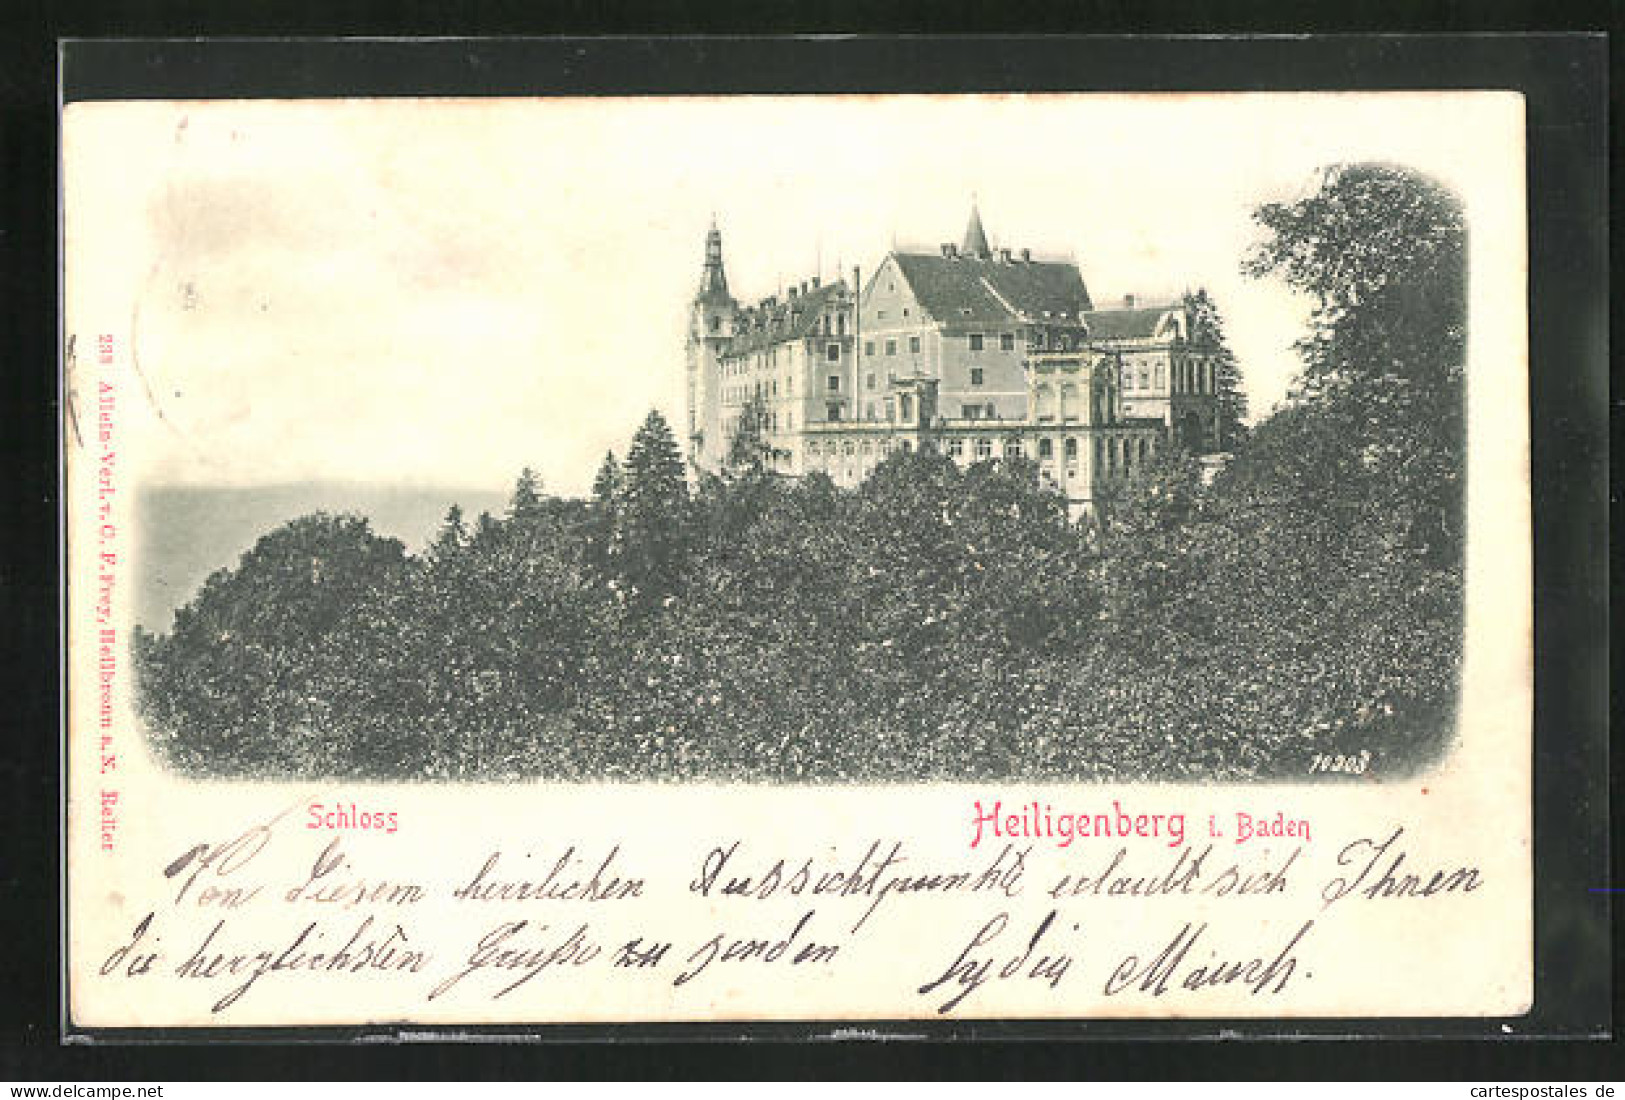 233 Allein-Verl. v. C. F. Frey, Heilbronn a. N. Reller
10903
Schloss
Heiligenberg i. Baden
Von diesem herrlichen Aussichtpunkte erlaubt sich Ihnen
die herzlichsten Grüsse zu senden Lydia
www.cartespostales.de
cartespostales de